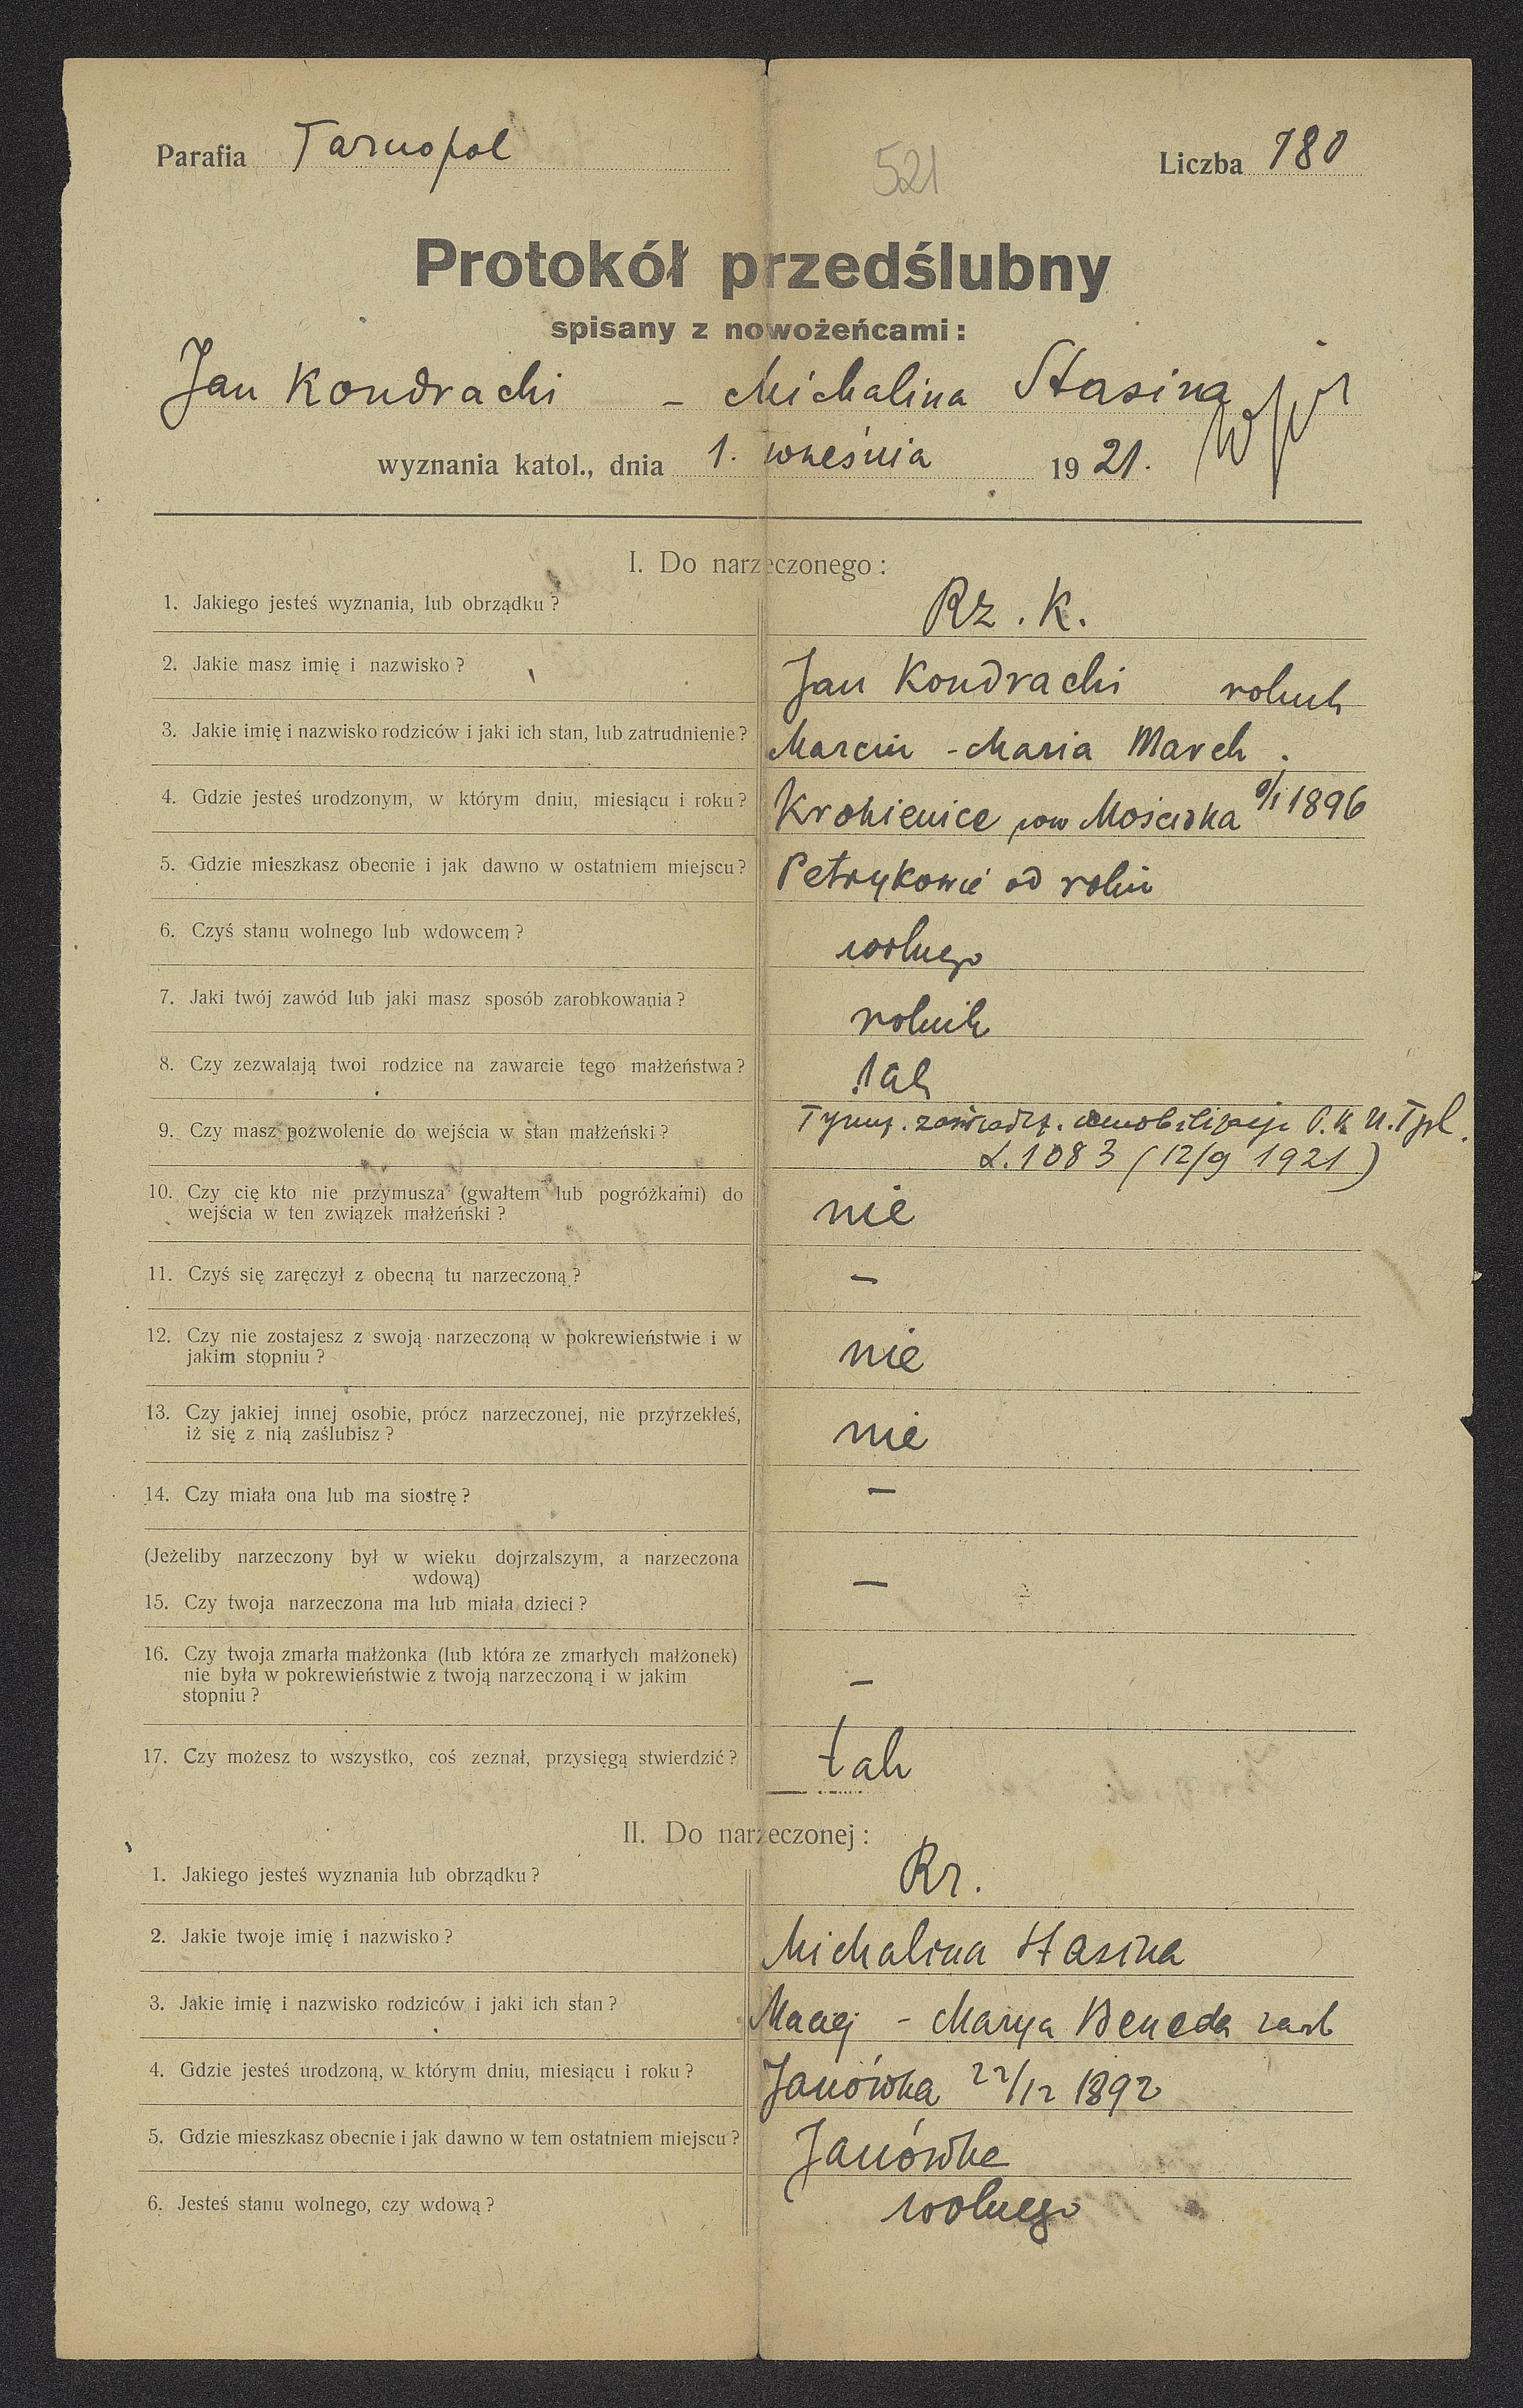 Parafia Tarnopol
521
Liczba 180
Protokół przedślubny
spisany z nowożeńcami:
Jan Kondracki - Michalina Stasina
wyznania katol., dnia 1. września 1921.
I. Do narzeczonego:
1. Jakiego jesteś wyznania, lub obrządku? Rz. K.
2. Jakie masz imię i nazwisko? Jan Kondracki rolnik
3. Jakie imię i nazwisko rodziców i jaki ich stan, lub zatrudnienie? Marcin - Maria
4. Gdzie jesteś urodzonym, w którym dniu, miesiącu i roku? Krokienice pow Mościska 1896
5. Gdzie mieszkasz obecnie i jak dawno w ostatniem miejscu? Petrykowie od roku
6. Czyś stanu wolnego lub wdowcem? wolnego
7. Jaki twój zawód lub jaki masz sposób zarobkowania? rolnik
8. Czy zezwalają twoi rodzice na zawarcie tego małżeństwa? tak
9. Czy masz pozwolenie do wejścia w stan małżeński? P.K.U. Tpl.
L. 1083 (12/9 1921)
10. Czy cię kto nie przymusza (gwałtem lub pogróżkami) do
wejścia w ten związek małżeński? nie
11. Czyś się zaręczył z obecną tu narzeczoną? –
12. Czy nie zostajesz z swoją narzeczoną w pokrewieństwie i w
jakim stopniu? nie
13. Czy jakiej innej osobie, prócz narzeczonej, nie przyrzekłeś,
iż się z nią zaślubisz? nie
14. Czy miała ona lub ma siostrę? –
(Jeżeliby narzeczony był w wieku dojrzalszym, a narzeczona
wdową) –
15. Czy twoja narzeczona ma lub miała dzieci?
16. Czy twoja zmarła małżonka (lub która ze zmarłych małżonek)
nie była w pokrewieństwie z twoją narzeczoną i w jakim
stopniu? –
17. Czy możesz to wszystko, coś zeznał, przysięgą stwierdzić? tak
II. Do narzeczonej:
1. Jakiego jesteś wyznania lub obrządku? Rz.
2. Jakie twoje imię i nazwisko? Michalina Stasina
3. Jakie imię i nazwisko rodziców i jaki ich stan? Maciej - Marya Beneda zarb
4. Gdzie jesteś urodzoną, w którym dniu, miesiącu i roku? Janówka 22/12 1892
5. Gdzie mieszkasz obecnie i jak dawno w tem ostatniem miejscu? Janówka
6. Jesteś stanu wolnego, czy wdową? wolnego